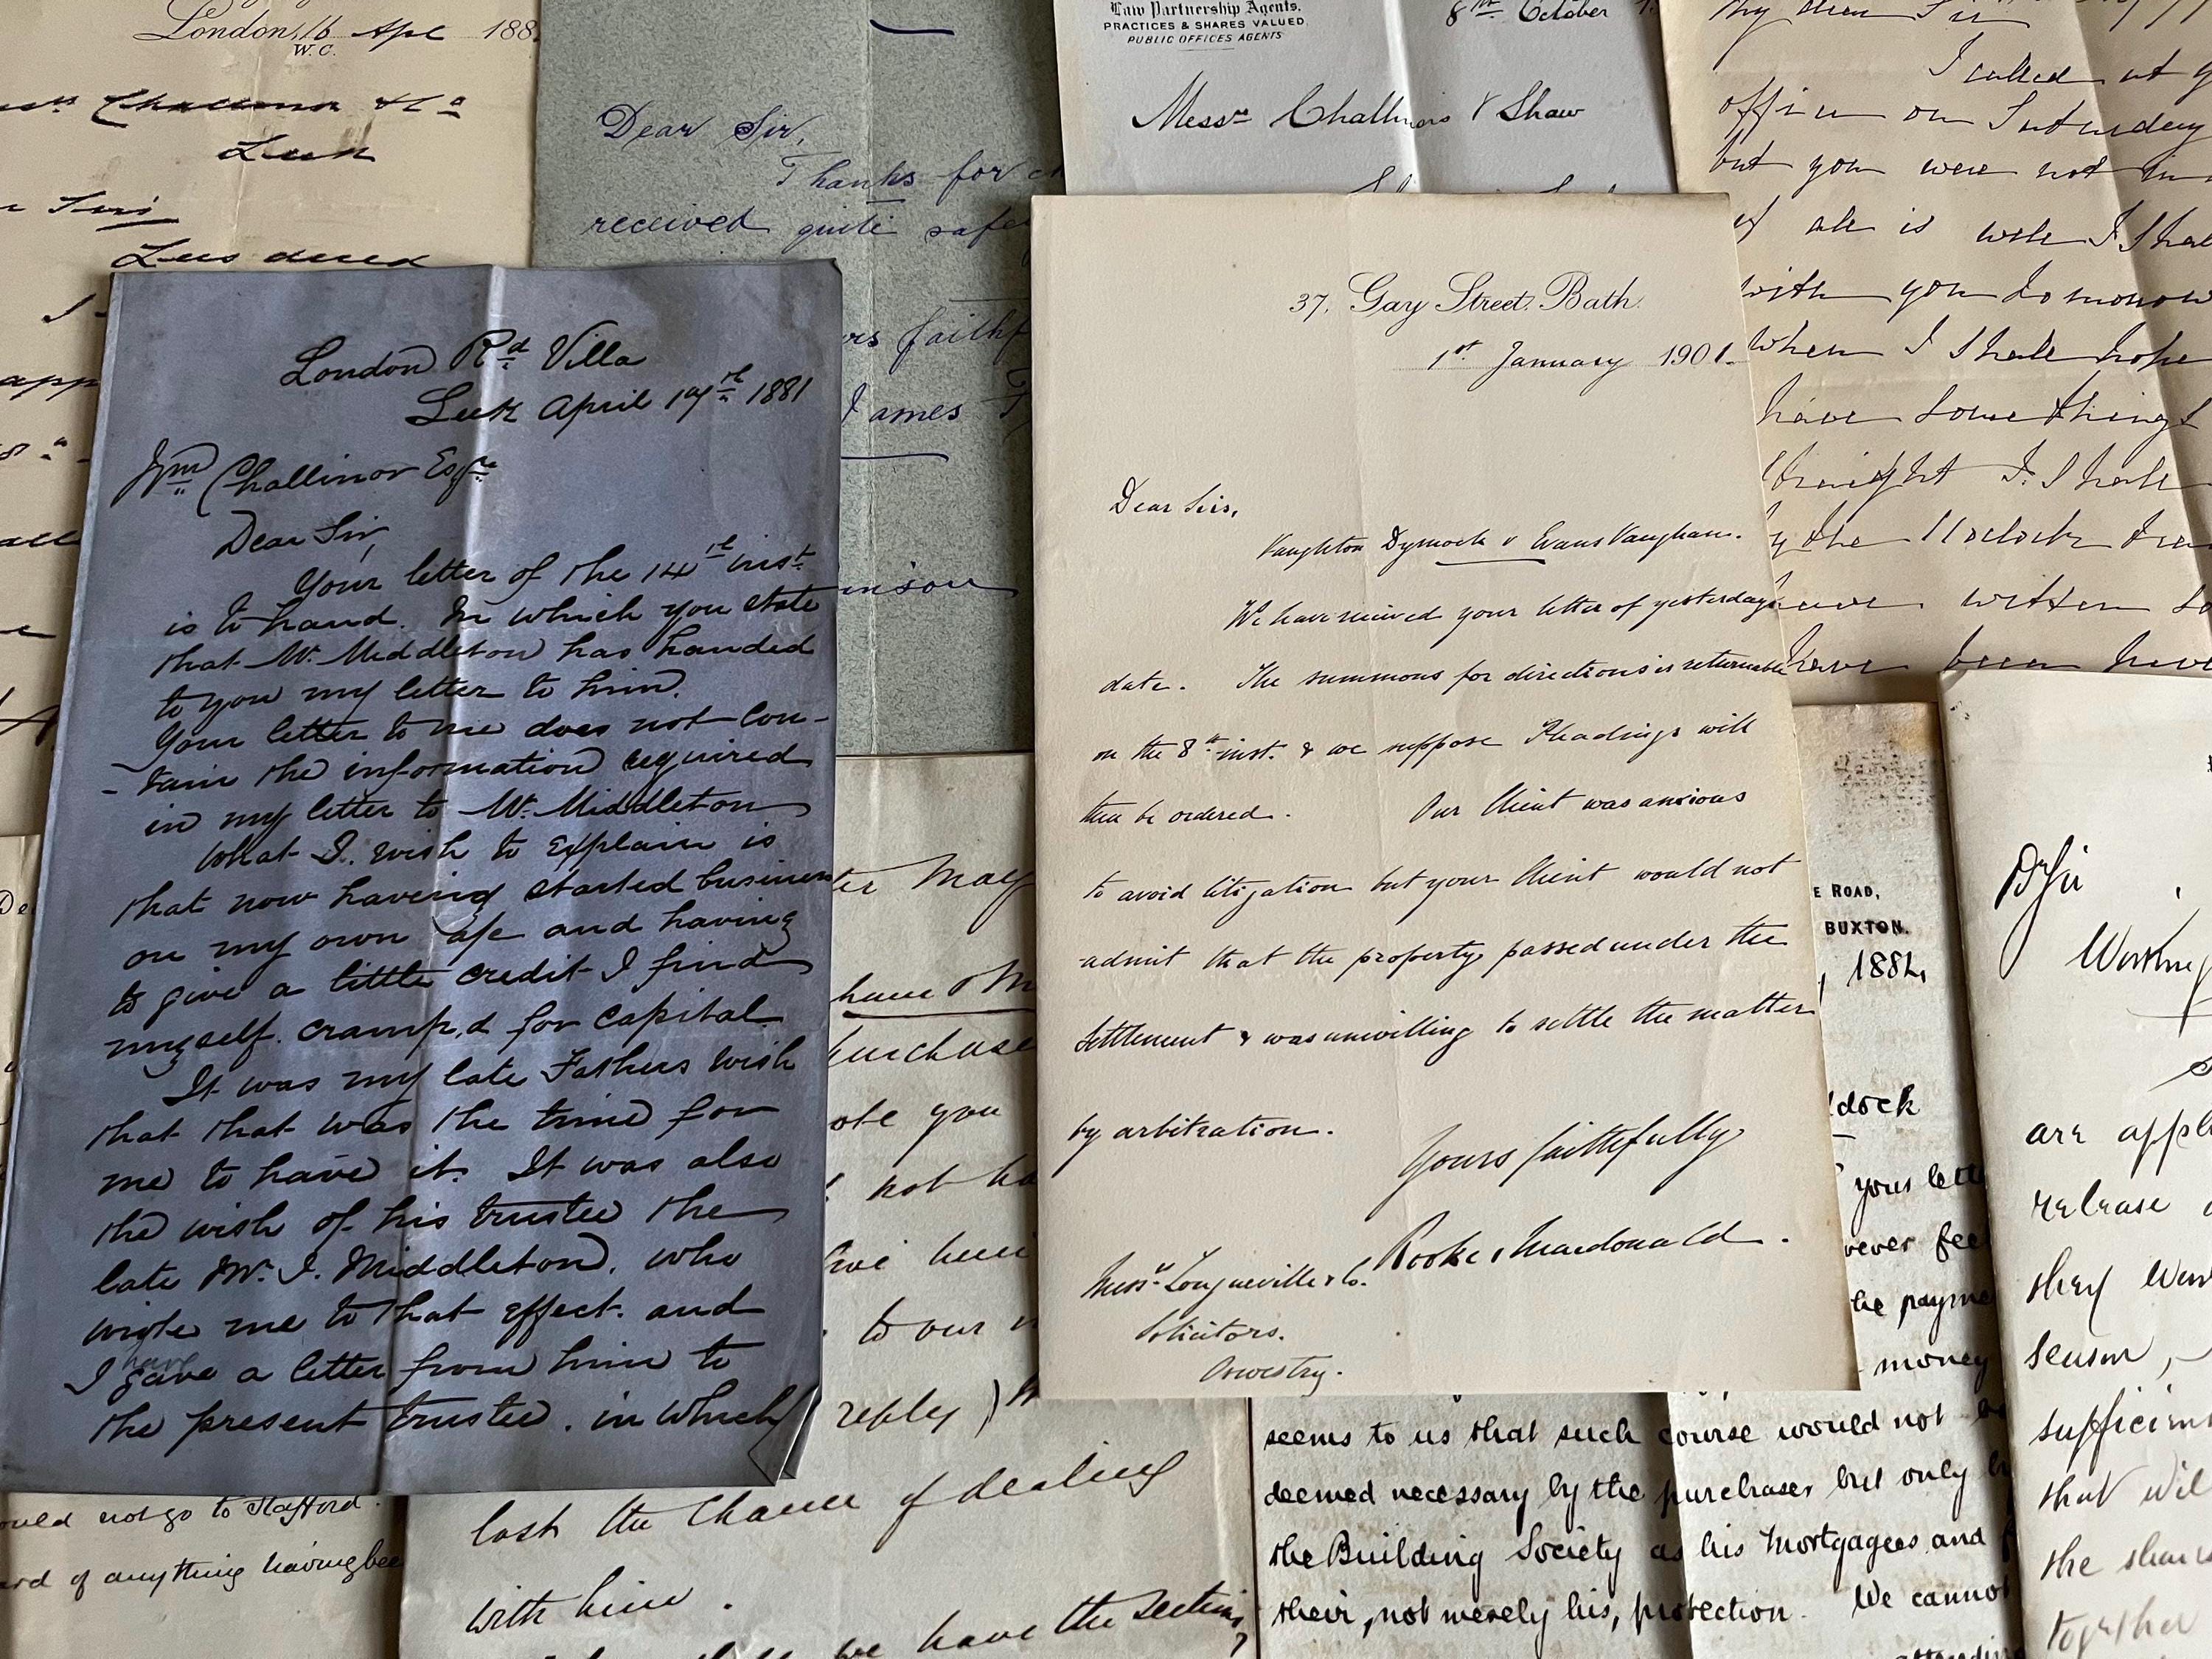 London, 16 Apl 188
W. C.
Leek
Dear Sir,
Thanks for
received quite safe
faithf
James
Law Partnership Agents.
PRACTICES & SHARES VALUED.
PUBLIC OFFICES AGENTS
8th October
Messrs Challinors & Shaw
My dear Sir
I called at
office on Saturday
but you were not in
all is well I Shal
with you to morrow
When I Shall hope
have Some things
Straight I Shall
the 11 oclock
written
have been
London Rd Villa
Leek April 19th 1881
Wm Challinor Esqre
Dear Sir,
Your letter of the 14th inst
is to hand. In which you state
that Mr. Middleton has handed
to you my letter to him.
Your letter to me does not con-
-tain the information required
in my letter to Mr. Middleton
What I. wish to explain is
that now having started business
on my own a/c and having
to give a little credit I find
myself. cramp,d for capital
It was my late Fathers wish
that that was the time for
me to have it. It was also
the wish of his trustee the
late Mr. J. Middleton. who
wrote me to that effect. and
have
I gave a letter from him to
the present trustee. in which
37, Gay Street, Bath.
1st January 1901.
Dear Sirs,
Vaughton Dymock v Evans Vaughan.
We have received your letter of yesterdays
date. The summons for directions is returnable
on the 8th inst. & we suppose Pleadings will
then be ordered. Our Client was anxious
to avoid litigation but your Client would not
admit that the property passed under the
Settlement & was unwilling to settle the matter
by arbitration.
Yours faithfully
Rooke & Macdonald.
Messrs Longueville & Co.
Solicitors.
Oswestry.
May
purchase
you
not
to our
reply)
lost the chance of dealing
with him.
we have the section,
ould not go to Stafford.
of anything having bee
E ROAD,
BUXTON.
1882,
dock
your lett
payme
money
seems to us that such course would not
deemed necessary by the purchaser but only
the Building Society as his Mortgagees and
their, not merely his, protection. We cannot
attendin
D Sir
are appl
release
they
season,
sufficient
that wil
the
together